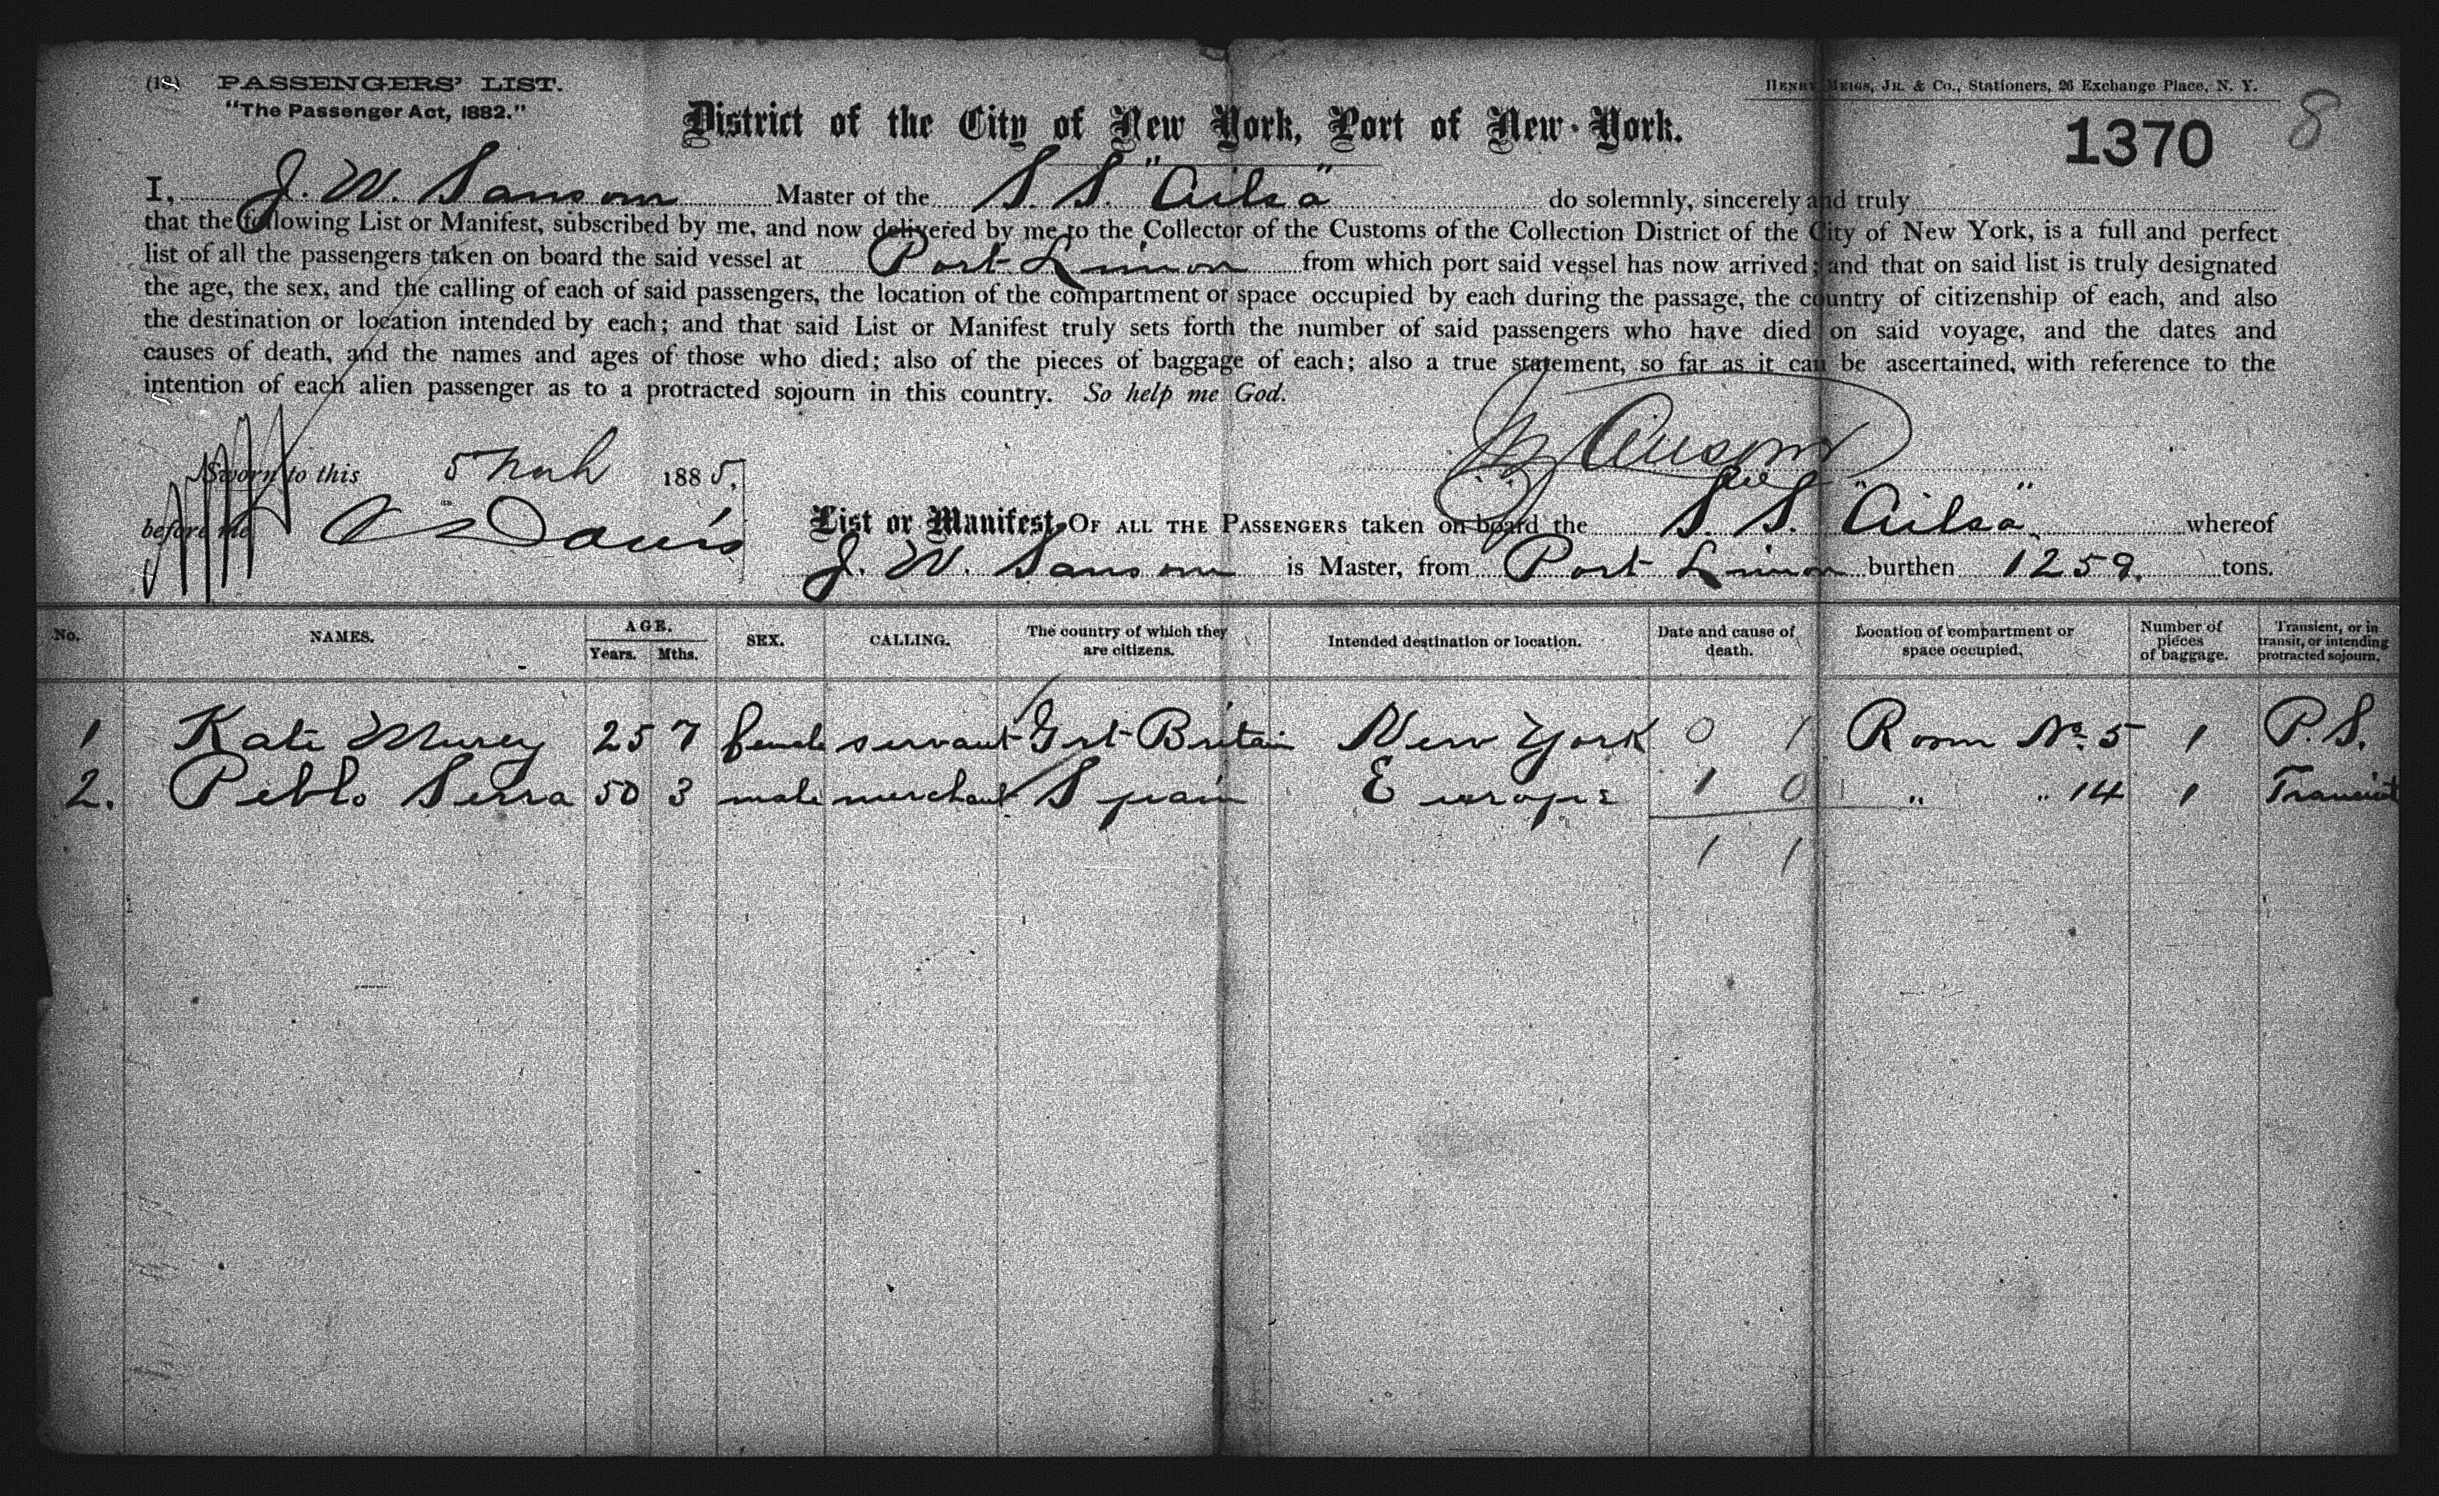 (18) PASSENGERS' LIST.
"The Passenger Act, 1882."
HENRY MEIGS, JR. & Co., Stationers, 26 Exchange Place, N. Y.
District of the City of New York, Port of New-York.
1370 8
I, J. W. Sansom Master of the S. S. "Ailsa" do solemnly, sincerely and truly
that the following List or Manifest, subscribed by me, and now delivered by me to the Collector of the Customs of the Collection District of the City of New York, is a full and perfect
list of all the passengers taken on board the said vessel at Port Limon from which port said vessel has now arrived; and that on said list is truly designated
the age, the sex, and the calling of each of said passengers, the location of the compartment or space occupied by each during the passage, the country of citizenship of each, and also
the destination or location intended by each; and that said List or Manifest truly sets forth the number of said passengers who have died on said voyage, and the dates and
causes of death, and the names and ages of those who died; also of the pieces of baggage of each; also a true statement, so far as it can be ascertained, with reference to the
intention of each alien passenger as to a protracted sojourn in this country. So help me God.
J W Sansom
Sworn to this 5 Mch 1885.
before me Davis
List or Manifest, OF ALL THE PASSENGERS taken on board the S. S. "Ailsa" whereof
J. W. Sansom is Master, from Port Limon burthen 1259. tons.
No. NAMES. AGE. Years. Mths. SEX. CALLING. The country of which they are citizens. Intended destination or location. Date and cause of death. Location of compartment or space occupied. Number of pieces of baggage. Transient, or in transit, or intending protracted sojourn.
1 Kate Murey 25 7 female servant Grt Britain New York 0 1 Room No. 5 1 P. S.
2. Peblo Serra 50 3 male merchant Spain Europe 1 0 " " 14 1 Transit
1 1